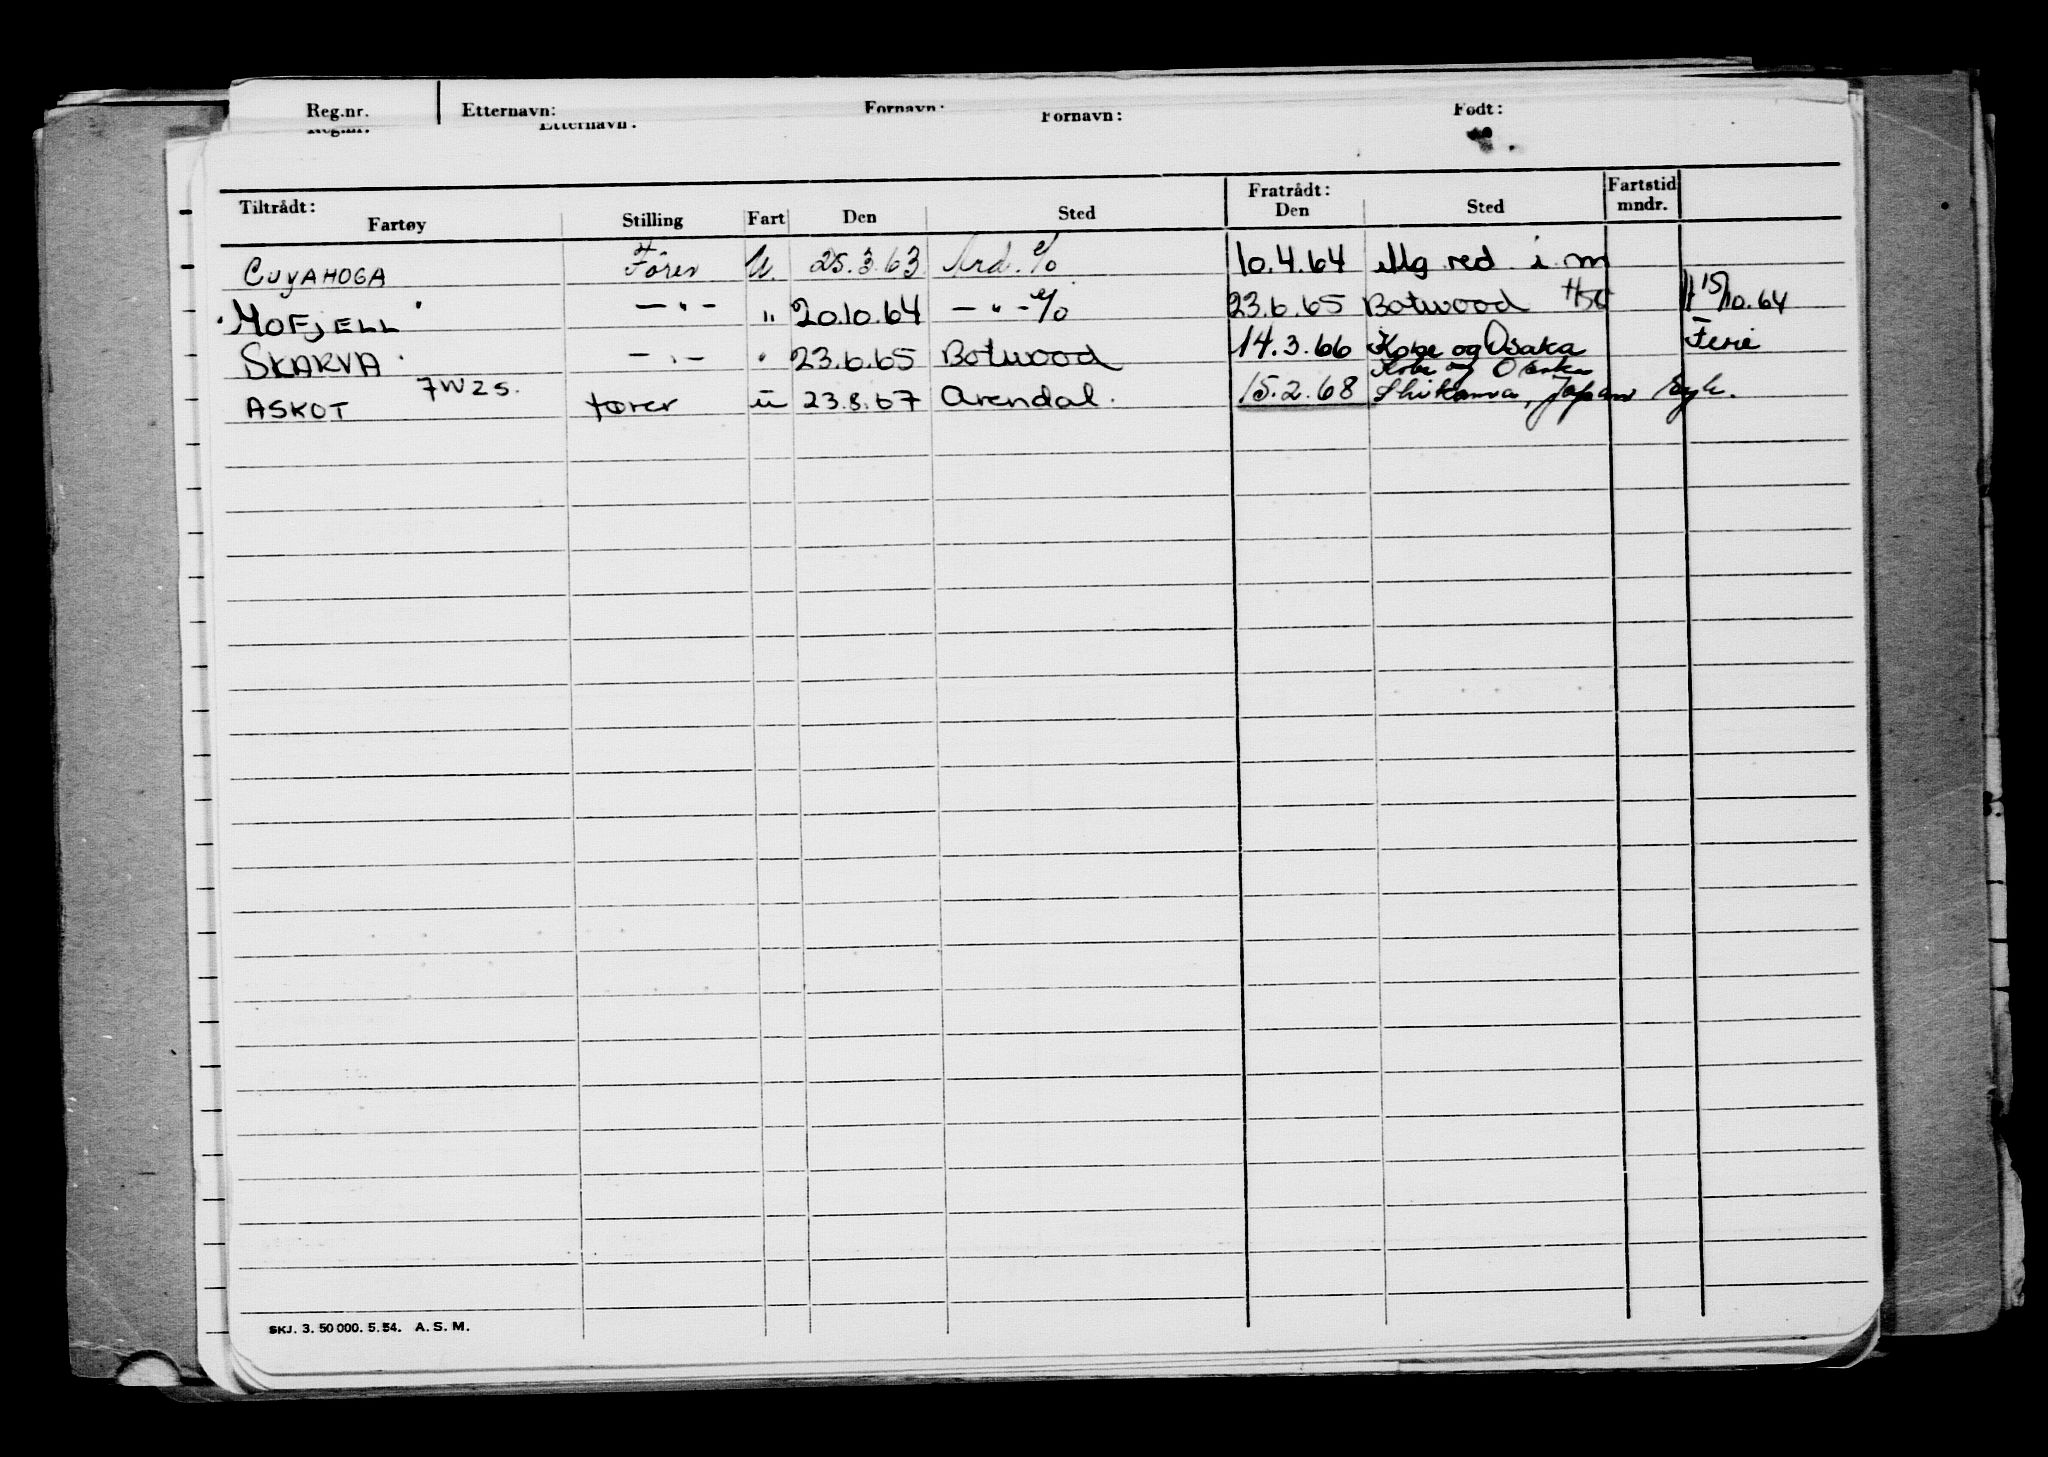 Reg.nr. Etternavn: Fornavn: Født:
Reg.nr. Etternavn: Fornavn:
Tiltrådt: Fratrådt: Fartstid
Fartøy Stilling Fart Den Sted Den Sted mndr.
CUYAHOGA Fører U. 25.3.63 Ard. e/o 10.4.64 Mg red i m
"MOFJELL" — " — " 20.10.64 — " — e/o 23.6.65 Botwood 15/10.64
SKARVA — " — " 23.6.65 Botwood 14.3.66 Kobe og Osaka Ferie
Kobe og Osaka
ASKOT 7W25. fører u 23.8.67 Arendal. 15.2.68 Japan Syk.
SKJ. 3. 50 000. 5. 54. A. S. M.